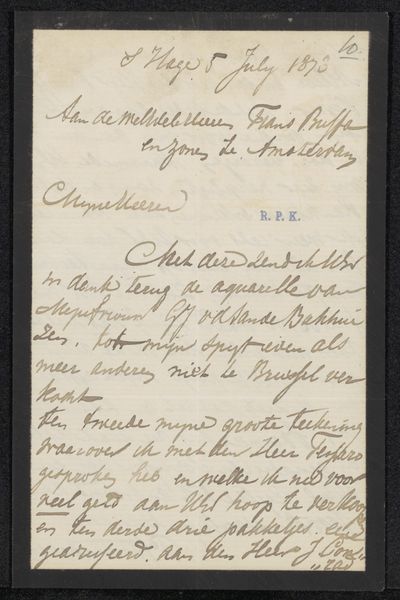 S Hage 5 July 1873
10.
Aan de Weledele Heeren Frans Buffa
en zonen te Amsterdam
Mijne Heeren
R. P. K.
Met deze zend ik UEd
in dank terug de aquarelle van
Mejufvrouw GJ vd Sande Bakhui
zen. tot mijn spyt even als
meer anderen niet te Brussel ver
kocht
ten tweede mijne groote teekening
waarover ik met den Heer
gesproken heb en welke ik nu voor
veel geld aan UEd hoop te verkoopen
en ten derde drie pakketjes
geadresseerd aan den Heer J